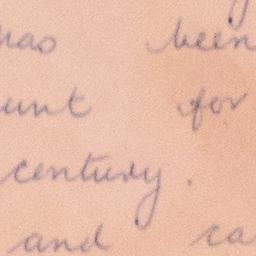 has been
unt for
century.
and ca